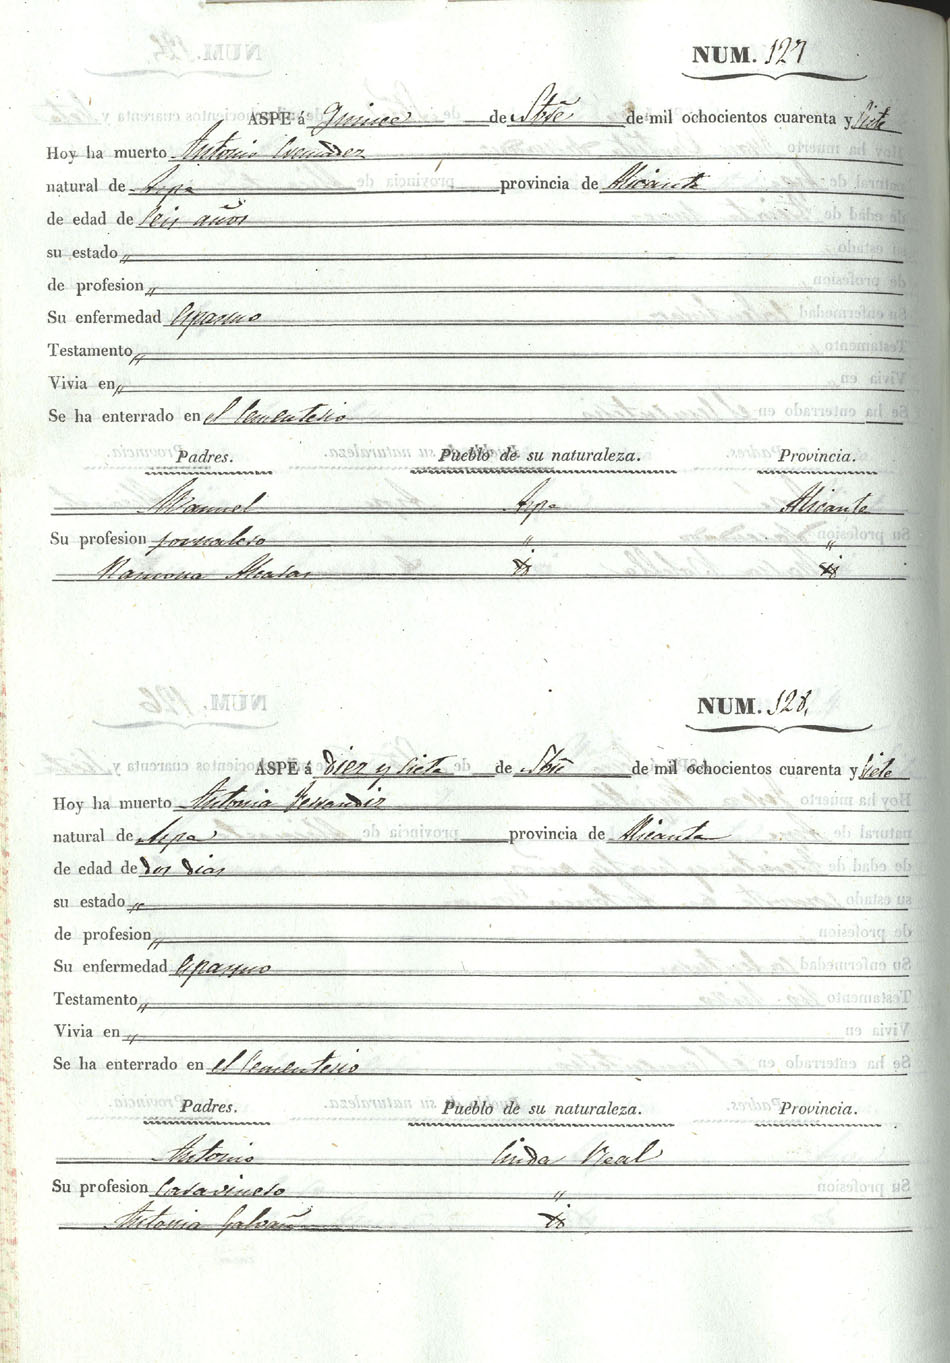 NUM. 127
ASPE á Quince de Stbre de mil ochocientos cuarenta y Siete
Hoy ha muerto Antonio
natural de Aspe provincia de Alicante
de edad de Seis años
su estado „
de profesion „
Su enfermedad Espasmo
Testamento „
Vivia en „
Se ha enterrado en el Cementerio
Padres. Pueblo de su naturaleza. Provincia.
Manuel Aspe Alicante
Su profesion jornalero „ „
Ramona Alcaras id id
NUM. 128.
ASPE á Diez y Siete de Stbre de mil ochocientos cuarenta y Siete
Hoy ha muerto Antonia Ferrandiz
natural de Aspe provincia de Alicante
de edad de dos dias
su estado „
de profesion „
Su enfermedad Espasmo
Testamento „
Vivia en „
Se ha enterrado en el Cementerio
Padres. Pueblo de su naturaleza. Provincia.
Antonio Ciudad Real
Su profesion „
Antonia Galvañ id